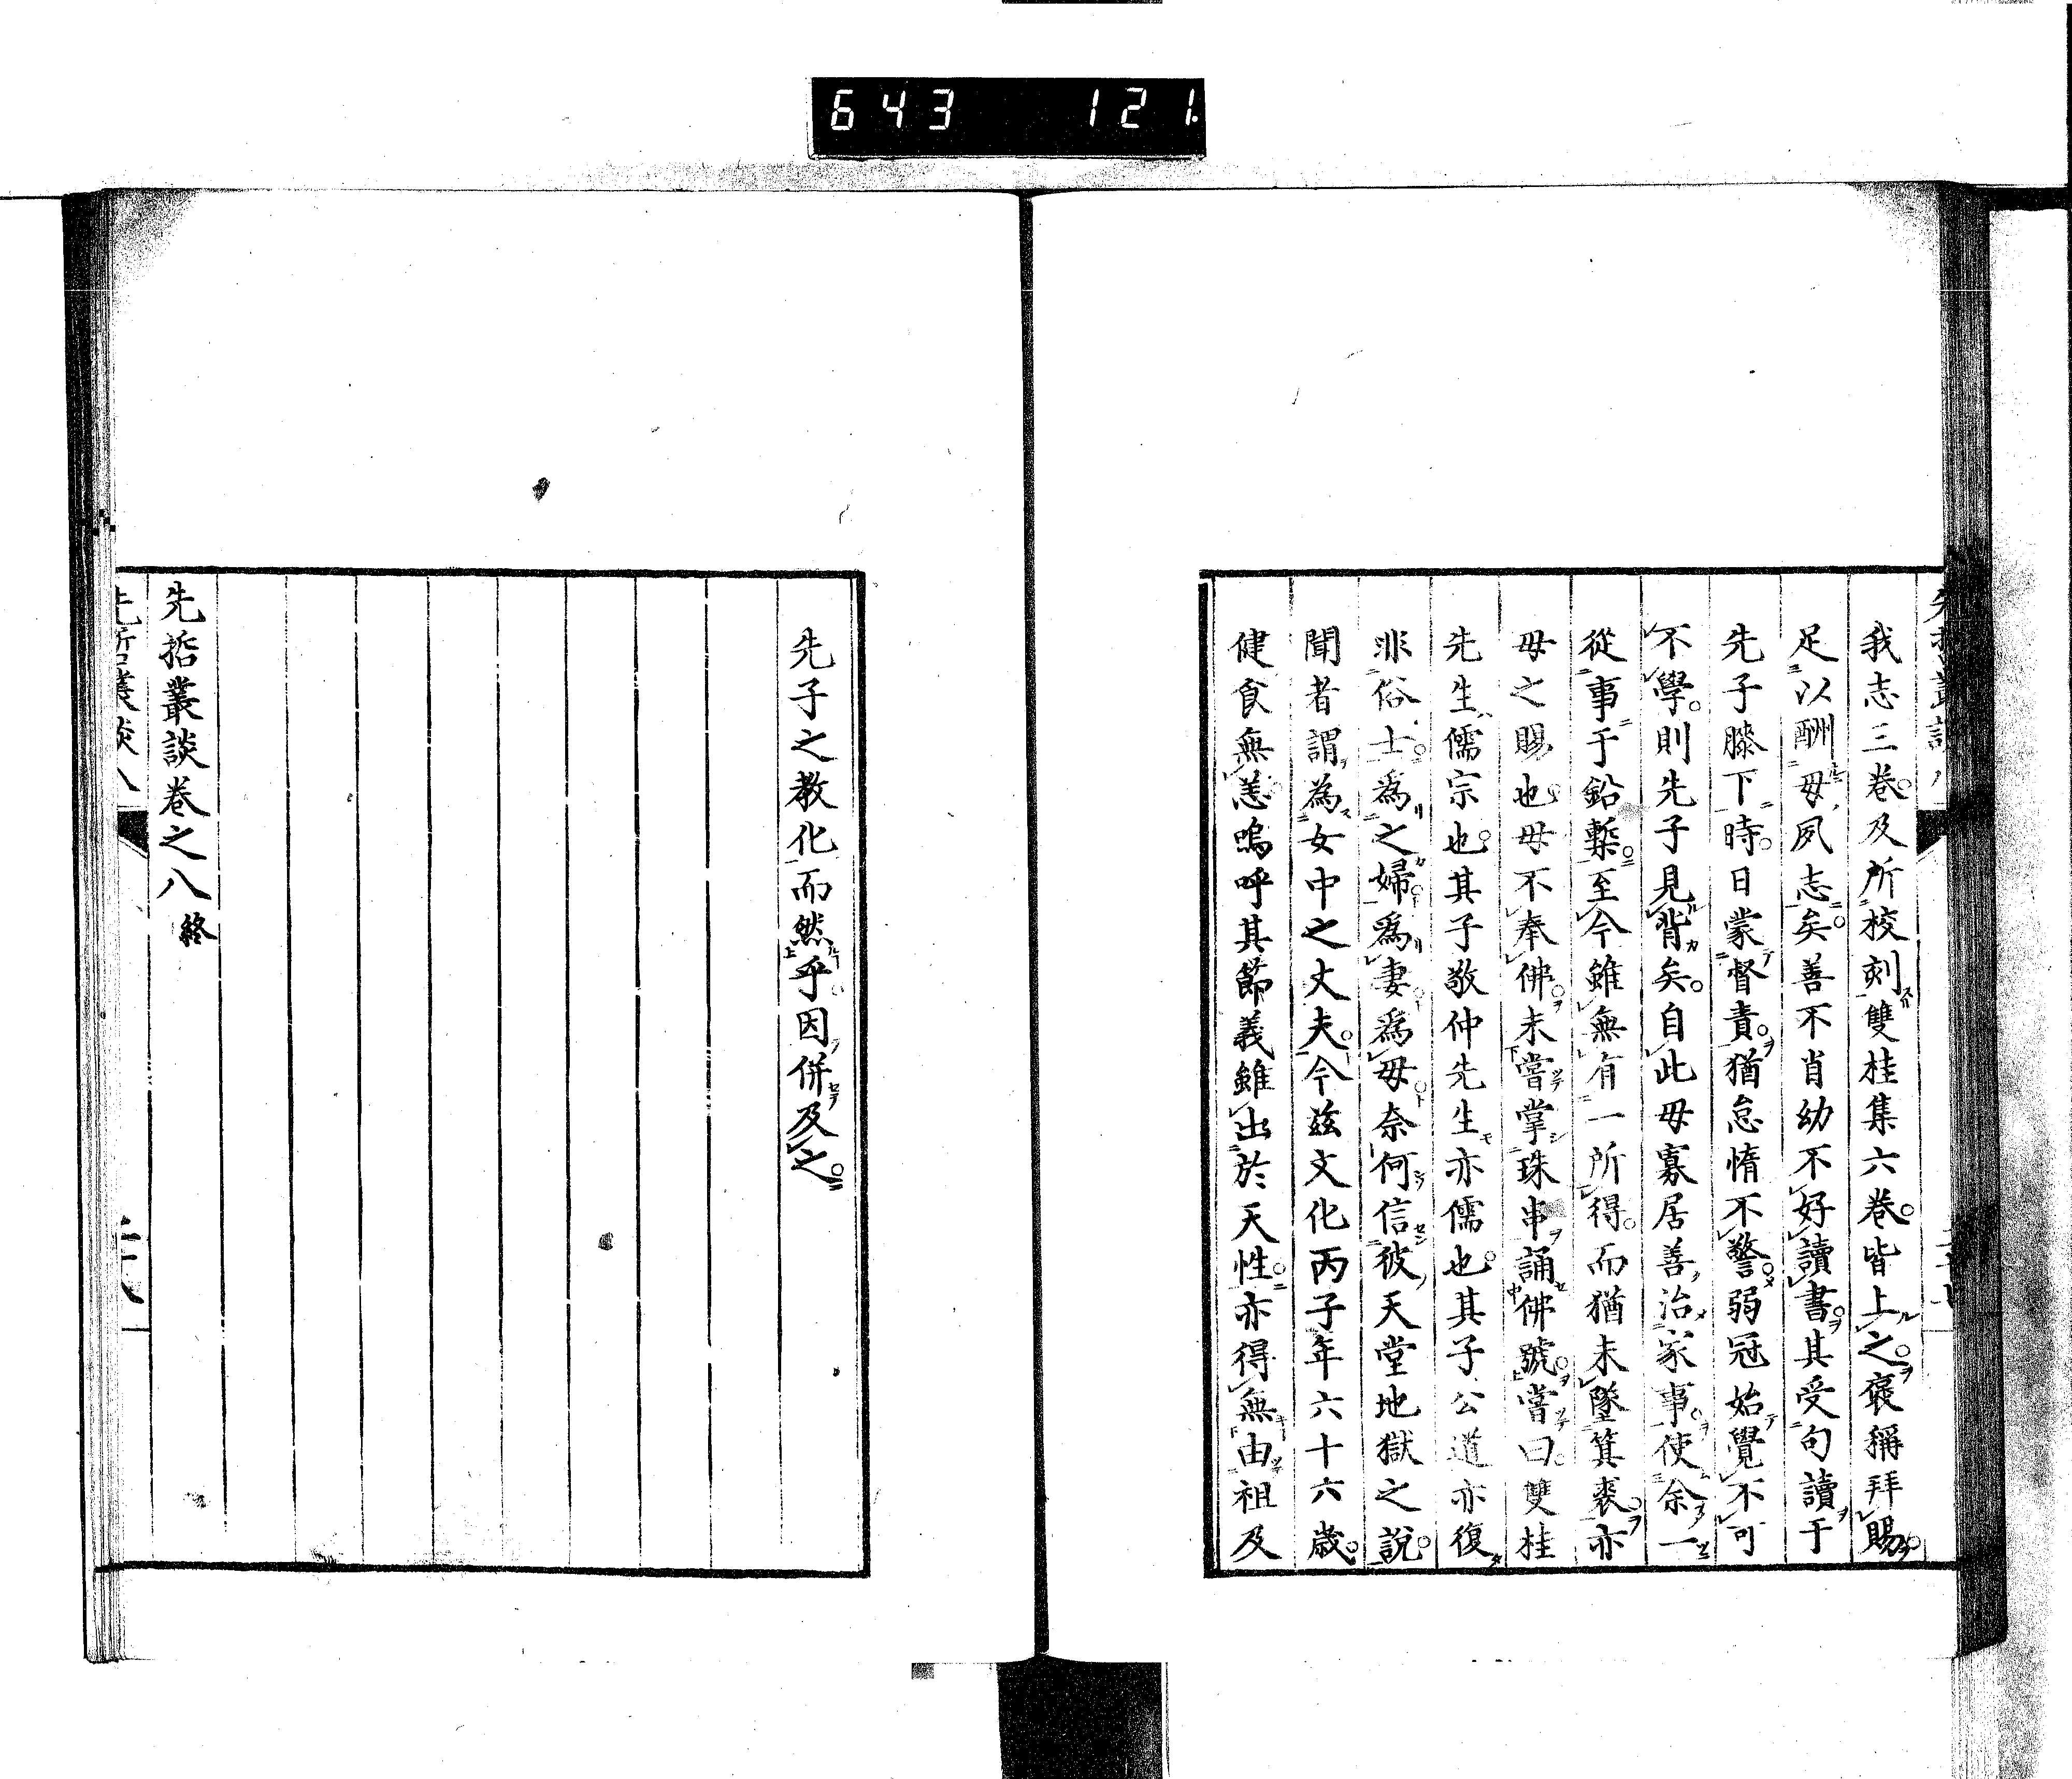 643 121
我志三卷及所校刻雙桂集六卷皆上之褒稱拜賜
足以酬母夙志矣善不肖幼不好讀書其受句讀于
先子膝下時日蒙督責猶怠惰不警弱冠始覺不可
不學則先子見背矣自此母寡居善治家事使余一
從事于鉛槧至今雖無有一所得而猶未墜箕裘亦
母之賜也母不奉佛未嘗掌珠串誦佛號嘗曰雙桂
先生儒宗也其子敬仲先生亦儒也其子公道亦復
非俗士爲之婦爲妻爲母奈何信彼天堂地獄之說
聞者謂為女中之丈夫今茲文化丙子年六十六歲
健食無恙嗚呼其節義雖出於天性亦得無由祖及
先子之教化而然乎因併及之
先哲叢談卷之八 終
先哲叢談八